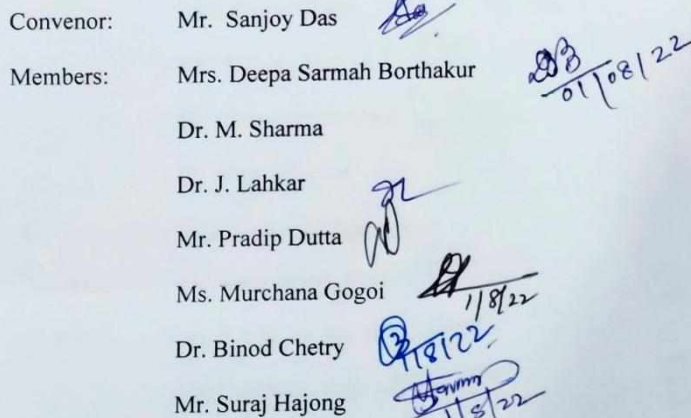 Convenor: Mr. Sanjoy Das
Members: Mrs. Deepa Sarmah Borthakur DB 01/08/22
Dr. M. Sharma
Dr. J. Lahkar
Mr. Pradip Dutta
Ms. Murchana Gogoi 1/8/22
Dr. Binod Chetry 1/8/22
Mr. Suraj Hajong 1/8/22